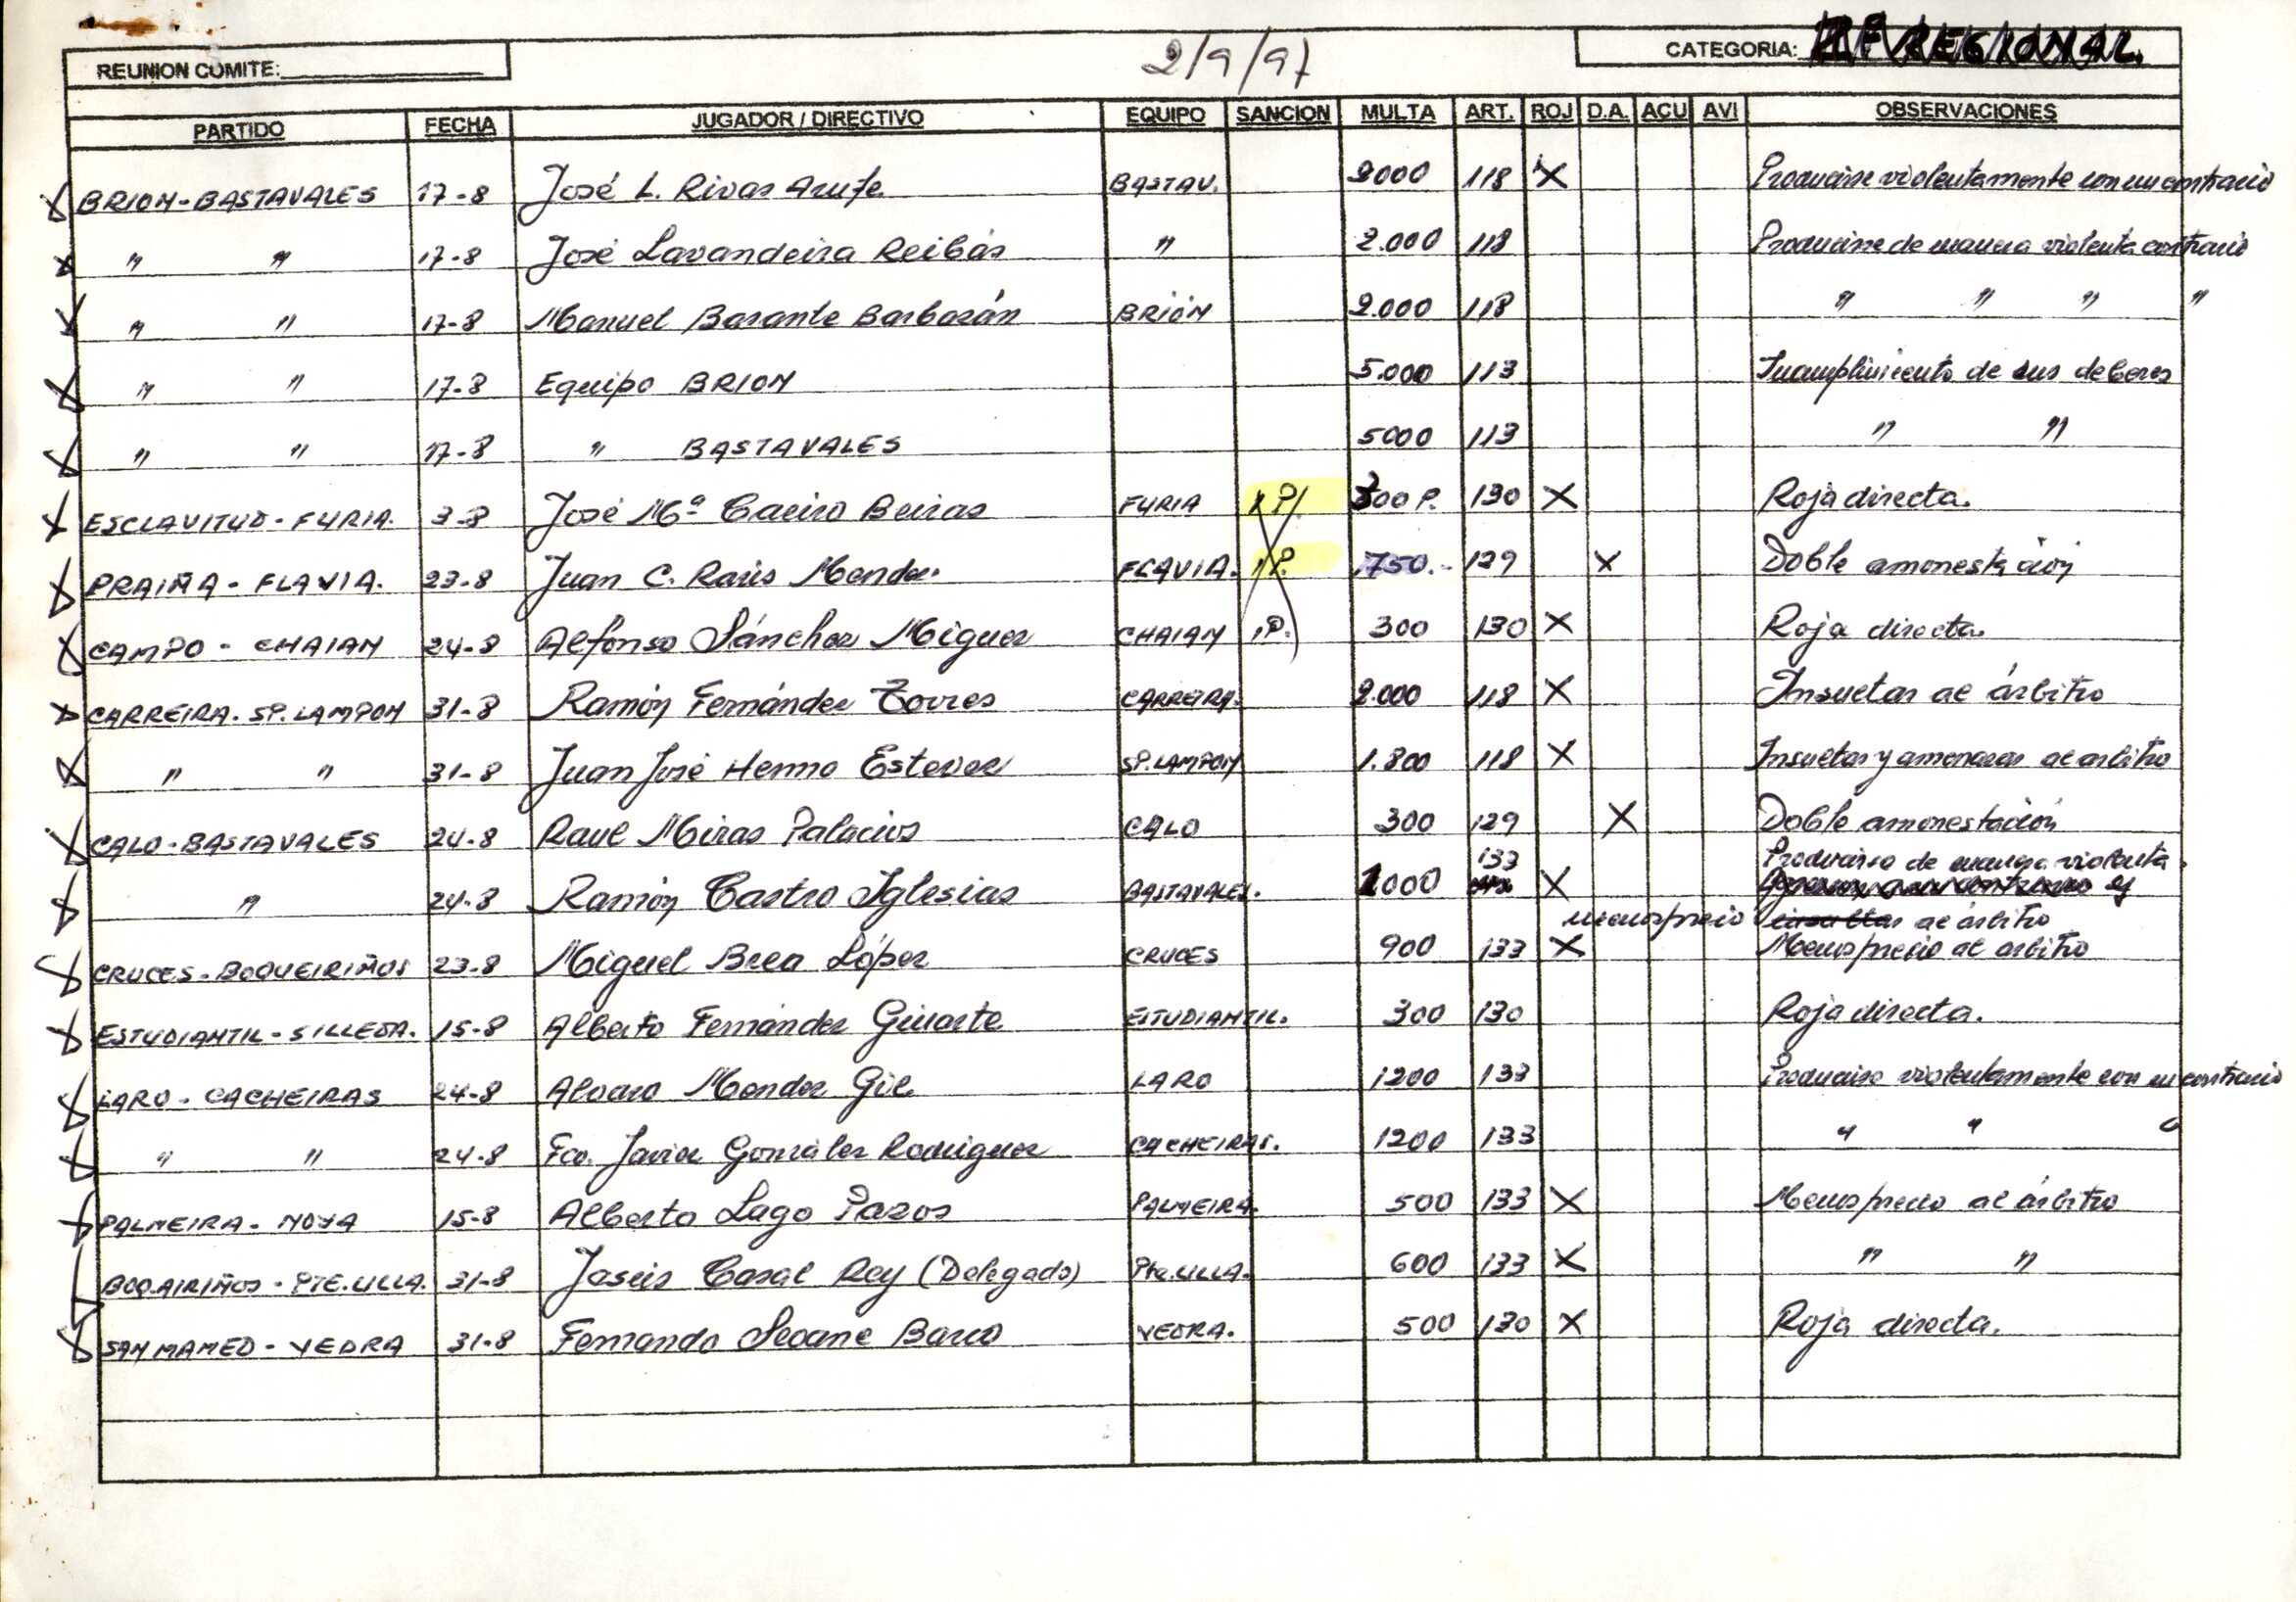 2/9/97
REUNION COMITE: CATEGORIA: REGIONAL.
PARTIDO FECHA JUGADOR / DIRECTIVO EQUIPO SANCION MULTA ART. ROJ D.A. ACU AVI OBSERVACIONES
BRION-BASTAVALES 17-8 José L. Rivas Arufe BASTAV. 2000 118 X Producirse violentamente con un contrario
" " 17-8 José Lavandeira Reibás " 2.000 118 Producirse de manera violenta contrario
" " 17-8 Manuel Barante Barbazán BRIÓN 2.000 118 " " " "
" " 17-8 Equipo BRION 5.000 113 Incumplimiento de sus deberes
" " 17-8 " BASTAVALES 5000 113 " "
ESCLAVITUD - FURIA. 3-8 José Mª Caeiro Beiras FURIA 1P. 300 P. 130 X Roja directa.
PRAIÑA - FLAVIA. 23-8 Juan C. Mendez FLAVIA. 1P. 750.- 129 X Doble amonestación
CAMPO - CHAIAN 24-8 Alfonso Sánchez Miguez CHAIAN 1P. 300 130 X Roja directa.
CARREIRA. SP. LAMPON 31-8 Ramón Fernández Torres CARREIRA. 2.000 118 X Insultar al árbitro
" " 31-8 Juan José Hermo Estevez SP. LAMPON 1.800 118 X Insultar y amenazar al arbitro
CALO - BASTAVALES 24-8 Raul Miras Palacios CALO 300 129 X Doble amonestación
" 24-8 Ramón Castro Iglesias BASTAVALES. 1000 133 X Producirse de manera violenta y
menosprecio al árbitro
CRUCES - BOQUEIRIÑOS 23-8 Miguel Brea López CRUCES 900 133 X Menosprecio al arbitro
ESTUDIANTIL - SILLEDA. 15-8 Alberto Fernández Giuarte ESTUDIANTIL. 300 130 Roja directa.
LARO - CACHEIRAS 24-8 Alvaro Mendez Gil LARO 1200 133 Producirse violentamente con un contrario
" " 24-8 Fco. Javier González Rodriguez CACHEIRAS. 1200 133 " " "
PALMEIRA - NOYA 15-8 Alberto Lago Pazos PALMEIRA. 500 133 X Menosprecio al árbitro
BOQ.AIRIÑOS - PTE. ULLA. 31-8 Jesús Casal Rey (Delegado) Pte. ULLA. 600 133 X " "
SAN MAMED - VEDRA 31-8 Fernando Seoane Barco VEDRA. 500 130 X Roja directa.